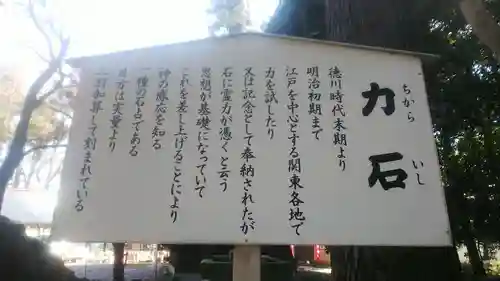 力石
ちから いし
徳川時代末期より
明治初期まで
江戸を中心とする関東各地で
力を試したり
又は記念として奉納されたが
石に霊力が憑くと云う
思想が基礎になっていて
これを差し上げることにより
神の感応を知る
一種の石占である
目方は実量より
一割加算して刻まれている